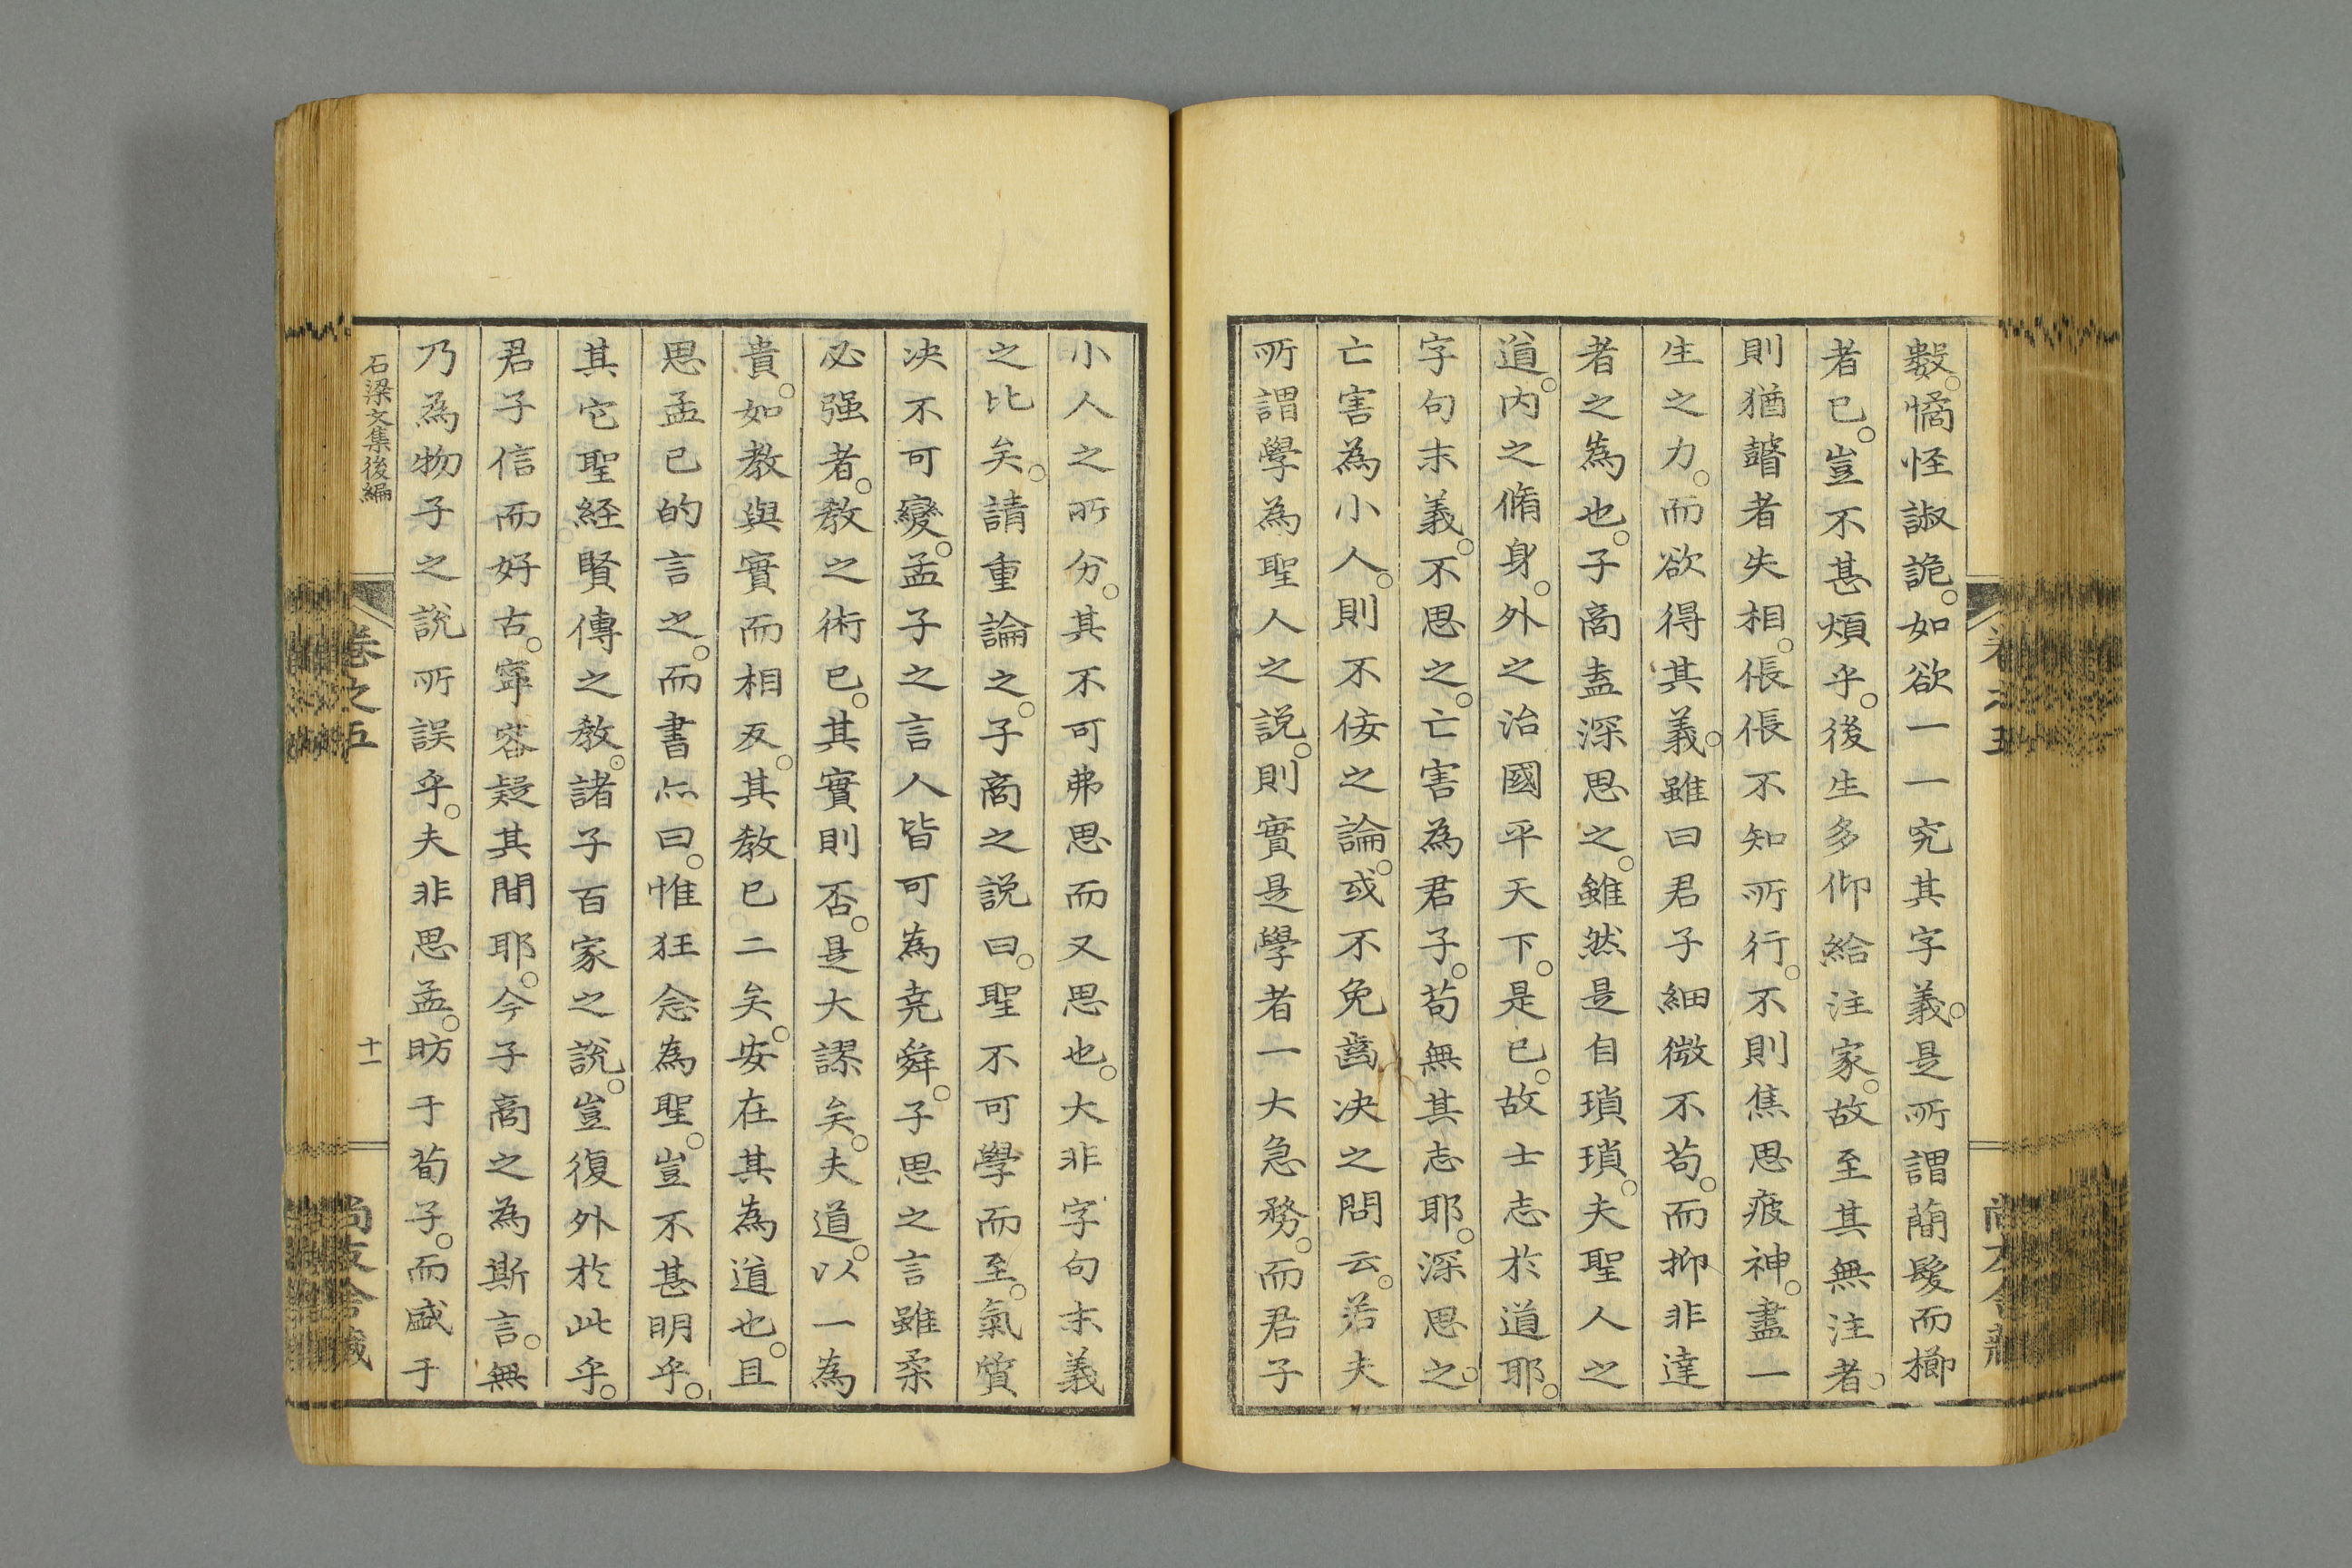 數。憰怪諔詭。如欲一一究其字義。是所謂簡髮而櫛
者已。豈不甚煩乎。後生多仰給注家。故至其無注者。
則猶瞽者失相。倀倀不知所行。不則焦思疲神。盡一
生之力。而欲得其義。雖曰君子細微不苟。而抑非達
者之為也。子商盍深思之。雖然是自瑣瑣。夫聖人之
道。内之脩身。外之治國平天下。是已。故士志於道耶。
字句末義。不思之。亡害為君子。苟無其志耶。深思之。
亡害為小人。則不佞之論。或不免齒决之問云。若夫
所謂學為聖人之説。則實是學者一大急務。而君子
小人之所分。其不可弗思而又思也。大非字句末義
之比矣。請重論之。子商之説曰。聖不可學而至。氣質
决不可變。孟子之言人皆可為堯舜。子思之言雖柔
必强者。教之術已。其實則否。是大謬矣。夫道。以一為
貴。如教與實而相反。其教已二矣。安在其為道也。且
思孟已的言之。而書亦曰。惟狂念為聖。豈不甚明乎。
其它聖経賢傳之教。諸子百家之說。豈復外於此乎。
君子信而好古。寧容疑其間耶。今子商之為斯言。無
乃為物子之說所誤乎。夫非思孟。昉于荀子。而盛于
石梁文集後編
卷之五
十一